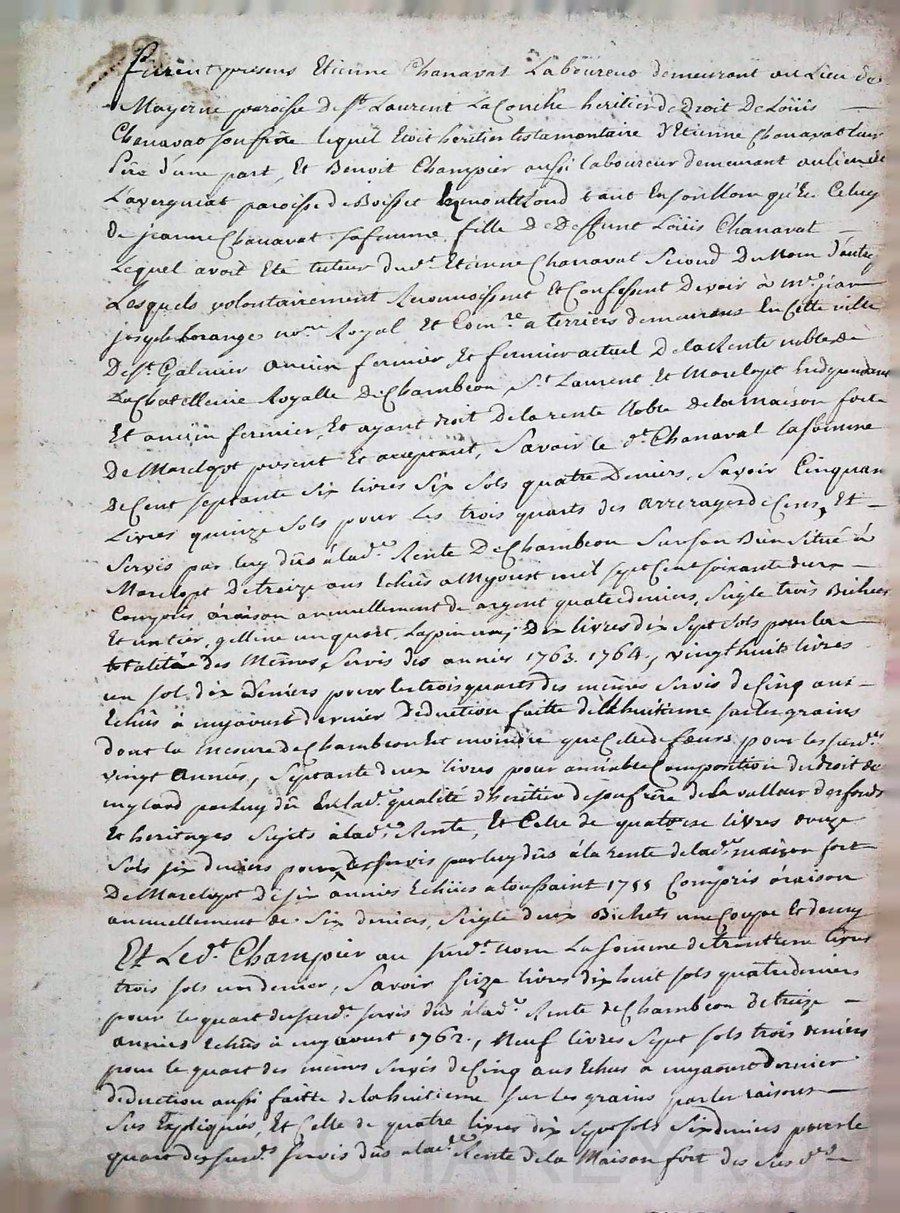 furent presens Etienne Chanavat Laboureur demeurant au Lieu de
Mayerne paroisse de St. Laurent La Conche heritier de Droit De Loüis
Chanavat son frere lequel Etoit heritier testamentaire d'Etienne Chanavat leur
Pere d'une part, Et Benoit Champier aussi laboureur demeurant au lieu de
Lavergniat paroisse de Boisset Les montrond tant En son Nom qu'En Celuy
de jeanne Chanavat sa femme fille de Deffunt Loüis Chanavat
Lequel avoit Eté tuteur dudt. Etienne Chanavat Second Du Nom d'autre
Lesquels volontairement Reconnoissent Et Confessent Devoir à Mre. jean
joseph Lorange nore. Royal Et Comre. a terriers demeurant En Cette ville
De St. Galmier ancien fermier Et fermier actuel De la Rente noble De
La Chatellenie Royalle De Chambeon St. Laurent Et Marclopt
Et ancien fermier, Et ayant droit De la rente Noble de la Maison forte
De Marclopt present Et aceptant, Savoir le dt. Chanavat la somme
De Cent septante six livres six sols quatre Deniers, Savoir Cinquante
Livres quinze sols pour Les trois quarts des arrerages de Cens, Et
Servis par luy dûs à lade. Rente De Chambeon Sur son Bien Situé à
Marclopt De treize ans Echûs a Myaoust mil sept Cent soixante deux
Compris à raison annuellement de argent quatre deniers, seigle trois Bichets
Et un tier, gelline un quart, Dix livres dix sept sols pour la
totalité des Mêmes Servis des années 1763. 1764., vingt huit livres
un sol dix Deniers pour les trois quarts des mêmes Servis de Cinq ans
Echûs à myaoust dernier Déduction faitte de l'huitieme sur les grains
dont la mesure de Chambeon Est moindre que Celle de feurs pour les susdes.
vingt années, Septante deux livres pour amiable Composition du droit de
my lard par luy dû En lade. qualité d'heritier de son frere de la valleur des fonds
Et heritages Sujets à lade. Rente, Et Celle de quatorze livres onze
sols six deniers pour les servis par luy dûs à la rente de lade. maison fort
De Marclopt De six années Echües a toussaint 1755 Compris à raison
annuellement de Six deniers, Seigle deux Bichets une Coupe Et demy
Et Ledt. Champier au susdt. nom La somme de trente une livres
trois sols un denier, Savoir seize livres dix huit sols quatre deniers
pour le quart des susds. servis dûs à lade. Rente de Chambeon de treize
années Echûs à myaoust 1762., Neuf livres sept sols trois deniers
pour le quart des mêmes Servis de Cinq ans Echus a myaoust dernier
déduction aussi faitte de la huitieme sur les grains par les raisons
Sus Expliqués, Et Celle de quatre livres dix sept sols six deniers pour le
quart des susds. servis dûs a lade. Rente de la Maison fort des susdes.